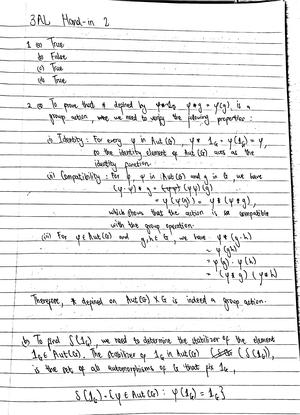 3AL Hand-in 2
1. (a) True
(b) False
(c) True
(d) True
2. (a) To prove that * defined by φ * g = φ(g), is a
group action, we need to verify the following properties:
(i) Identity: For every φ in Aut(G), φ * 1_G = φ(1_G) = φ,
so the identity element of Aut(G) acts as the
identity function.
(ii) Compatibility: For φ, ψ in Aut(G) and g in G we have
(φ·ψ) * g = (φψ)(g)
= φ(ψ(g)) = φ * (ψ * g),
which shows that the action is compatible
with the group operation.
(iii) For φ ∈ Aut(G) and g, h ∈ G, we have φ * (g·h)
= φ(gh)
= φ(g)·φ(h)
= (φ * g)(φ * h)
Therefore, * defined on Aut(G) × G is indeed a group action.
(b) To find S(1_G), we need to determine the stabilizer of the element
1_G ∈ Aut(G). The stabilizer of 1_G in Aut(G) (S(1_G)),
is the set of all automorphisms of G that fix 1_G,
S(1_G) = {φ ∈ Aut(G) : φ(1_G) = 1_G}